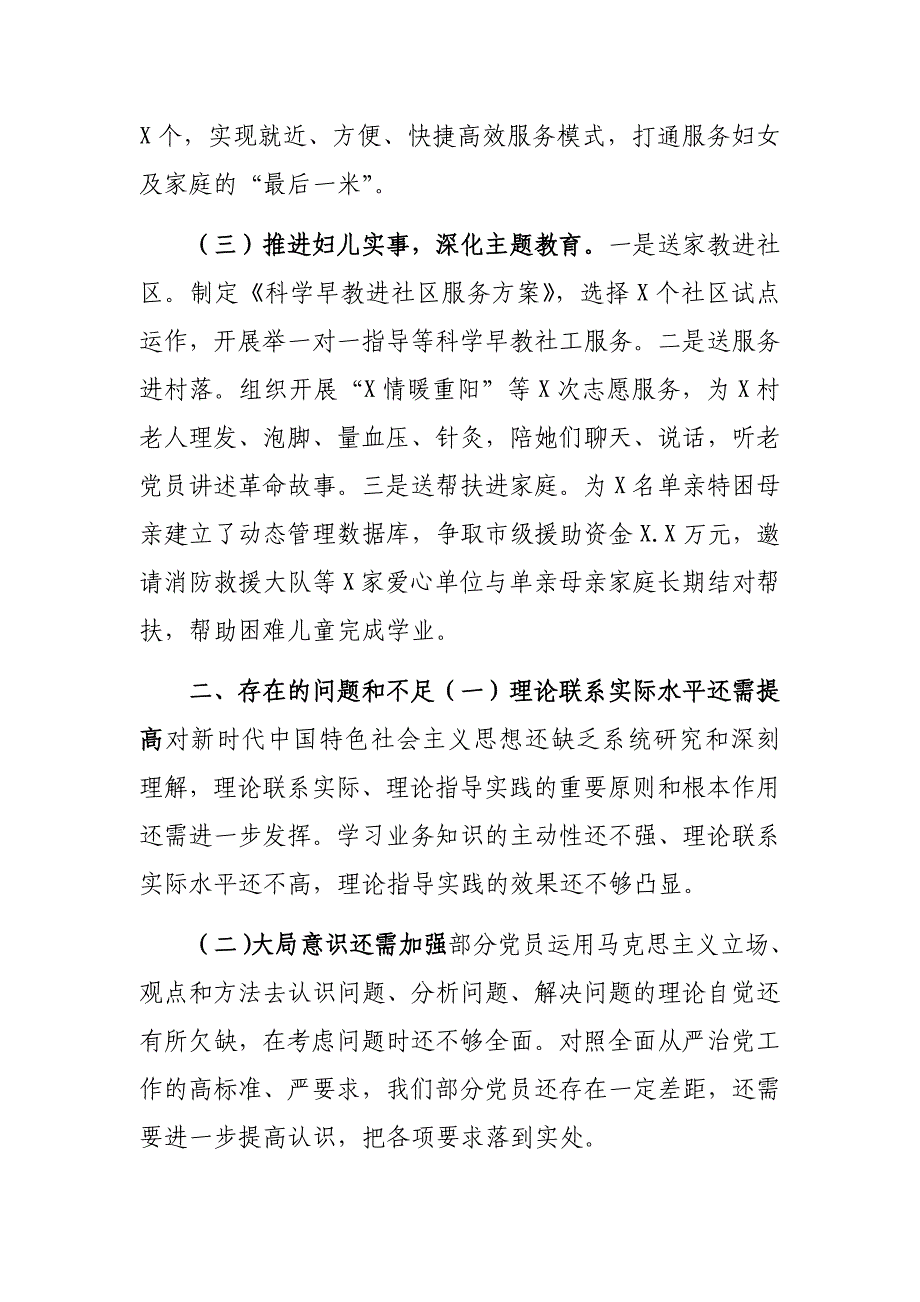 X 个，实现就近、方便、快捷高效服务模式，打通服务妇女
及家庭的“最后一米”。
（三）推进妇儿实事，深化主题教育。一是送家教进社
区。制定《科学早教进社区服务方案》，选择 X 个社区试点
运作，开展举一对一指导等科学早教社工服务。二是送服务
进村落。组织开展“X 情暖重阳”等 X 次志愿服务，为 X 村
老人理发、泡脚、量血压、针灸，陪她们聊天、说话，听老
党员讲述革命故事。三是送帮扶进家庭。为 X 名单亲特困母
亲建立了动态管理数据库，争取市级援助资金 X.X 万元，邀
请消防救援大队等 X 家爱心单位与单亲母亲家庭长期结对帮
扶，帮助困难儿童完成学业。
二、存在的问题和不足（一）理论联系实际水平还需提
高对新时代中国特色社会主义思想还缺乏系统研究和深刻
理解，理论联系实际、理论指导实践的重要原则和根本作用
还需进一步发挥。学习业务知识的主动性还不强、理论联系
实际水平还不高，理论指导实践的效果还不够凸显。
（二)大局意识还需加强部分党员运用马克思主义立场、
观点和方法去认识问题、分析问题、解决问题的理论自觉还
有所欠缺，在考虑问题时还不够全面。对照全面从严治党工
作的高标准、严要求，我们部分党员还存在一定差距，还需
要进一步提高认识，把各项要求落到实处。